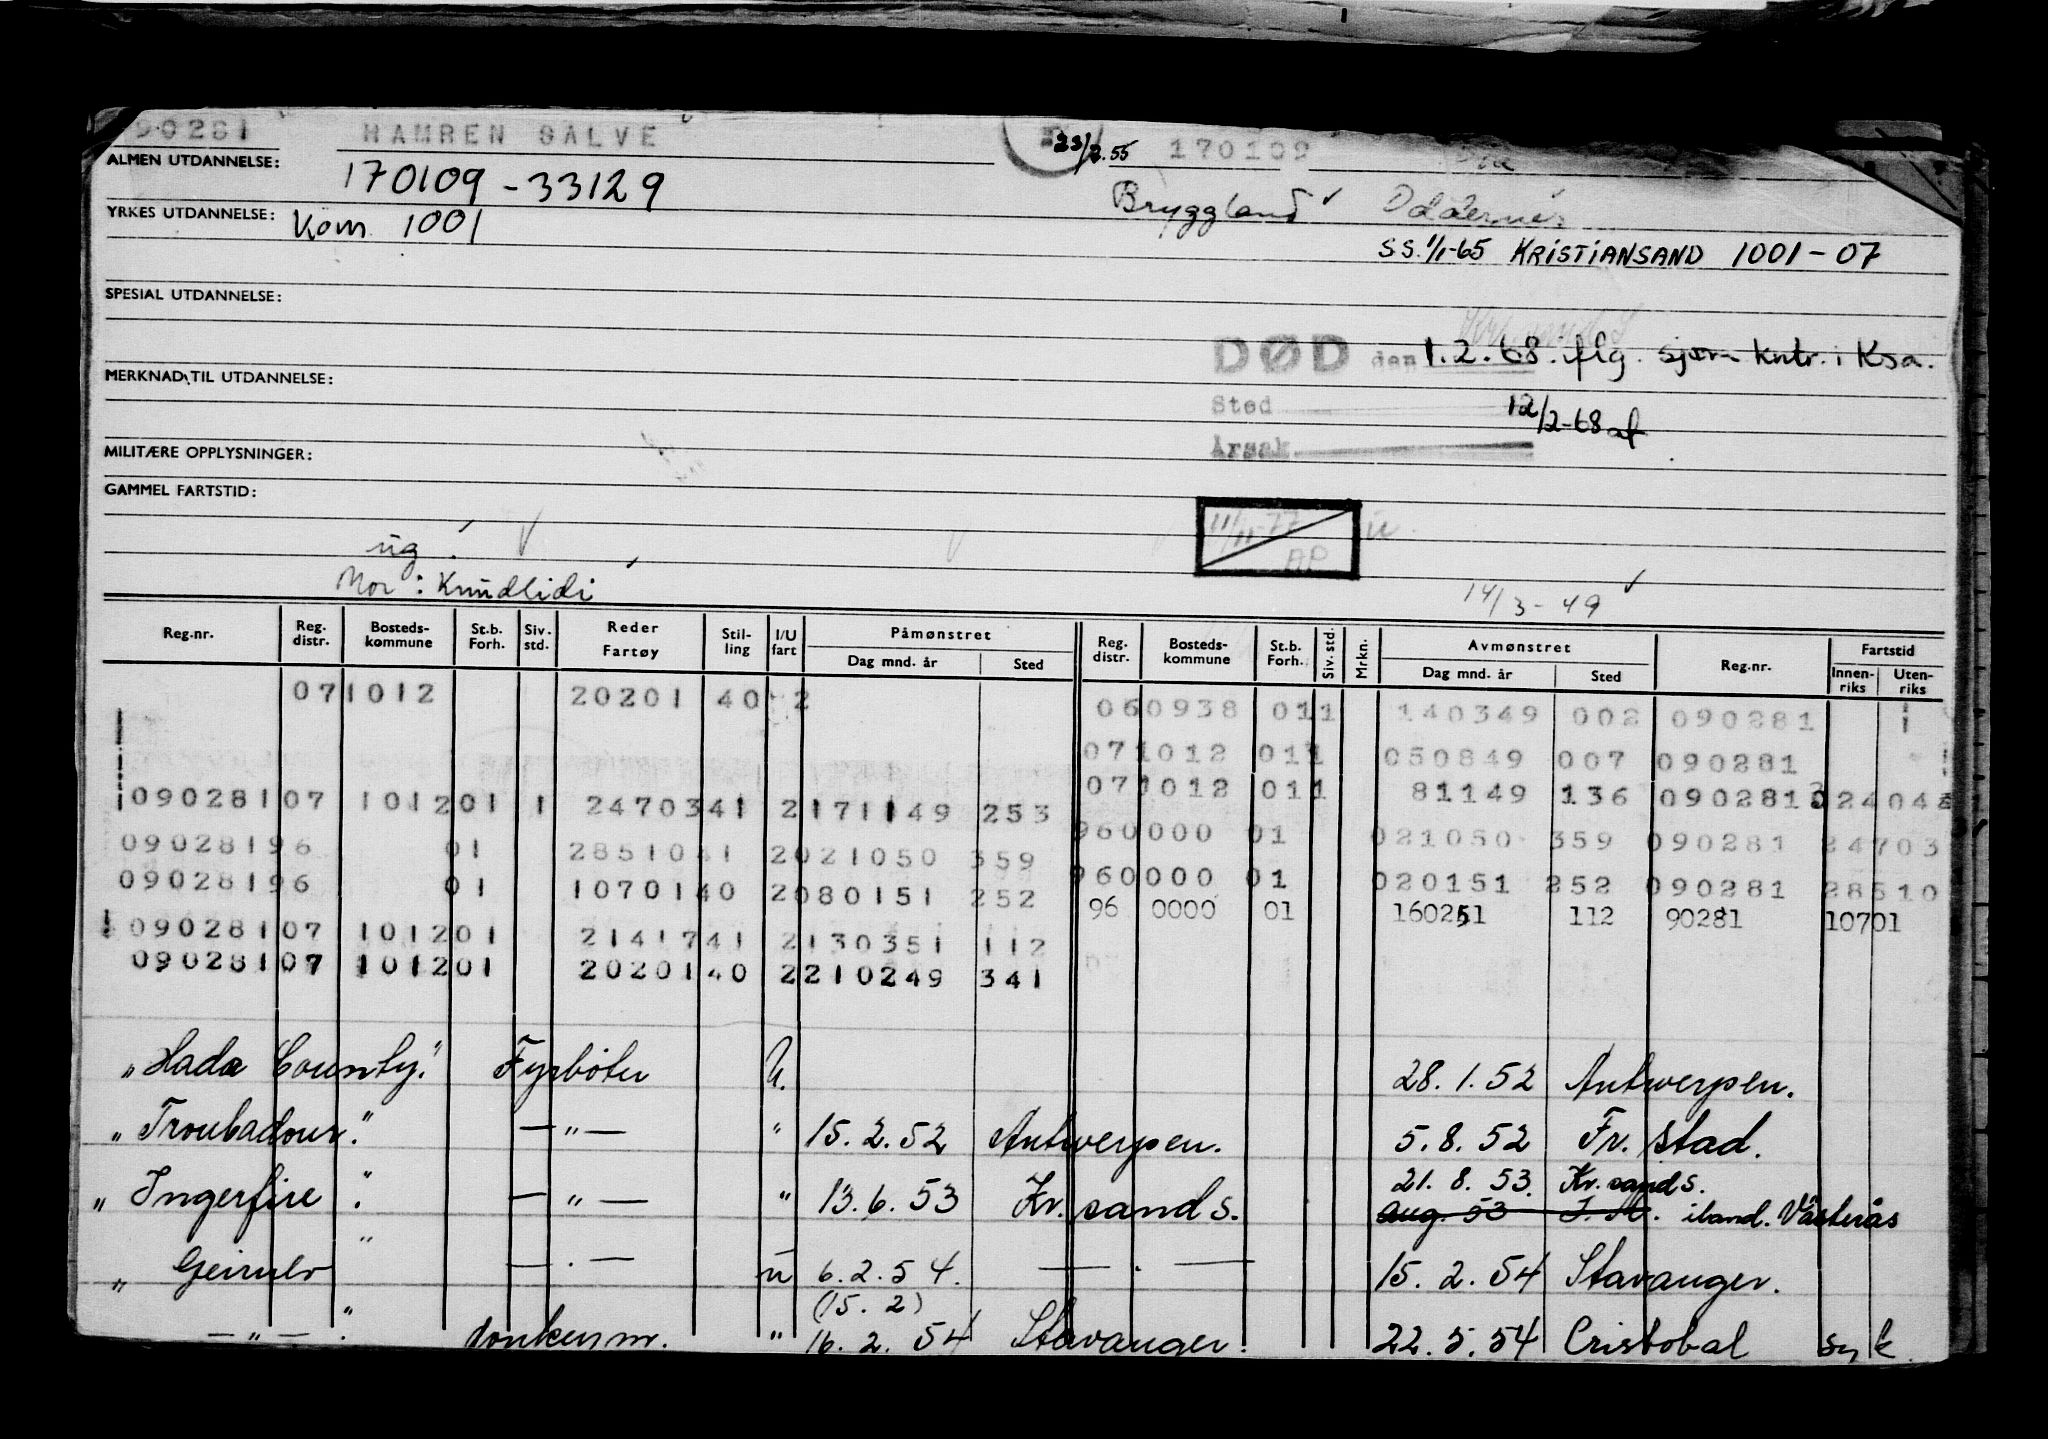 90281 HAMREN SALVE 23/2.55 170109
ALMEN UTDANNELSE: 170109-33129
Bryggland ✓ Oddernes
YRKES UTDANNELSE: Kom 1001
SS. 1/1-65 KRISTIANSAND 1001-07
SPESIAL UTDANNELSE:
DØD den 1.2.68. iflg. sjøm kntr. i Ksa.
MERKNAD TIL UTDANNELSE:
Sted 12/2-68 af
MILITÆRE OPPLYSNINGER: Årsak
GAMMEL FARTSTID:
11/11-77 AP
ug.
Mor: Knudlidi
14/3-49
Reg.nr. Reg. distr. Bosteds-kommune St.b. Forh. Siv. std. Reder Fartøy Stil-ling I/U fart Påmønstret Dag mnd. år Sted Reg. distr. Bosteds-kommune St.b. Forh. Siv. std. Mrkn. Avmønstret Dag mnd. år Sted Reg.nr. Fartstid Innen-riks Uten-riks
071012 20201 40 2 060938 011 140349 002 090281
071012 011 050849 007 090281
09028107 101201 1 2470341 2171149 253 071012 011 81149 136 090281 02404
09028196 01 2851041 2021050 359 960000 01 021050 359 090281 24703
09028196 01 1070140 2080151 252 960000 01 020151 252 090281 28510
96 0000 01 160251 112 90281 10701
09028107 101201 2141741 2130351 112
09028107 101201 2020140 2210249 341
"Hada County". Fyrbøter U. 28.1.52 Antwerpen.
"Troubadour". — " — " 15.2.52 Antwerpen. 5.8.52 Fr.stad.
21.8.53. Kr.sand S.
"Ingerfire". — " — " 13.6.53 Kr.sand S. aug. 53 iland. Västerås
"Geirulv" — . — u 6.2.54. — . — 15.2.54 Stavanger.
(15.2)
— " — . donkeym. " 16.2.54 Stavanger. 22.5.54 Cristobal syk.